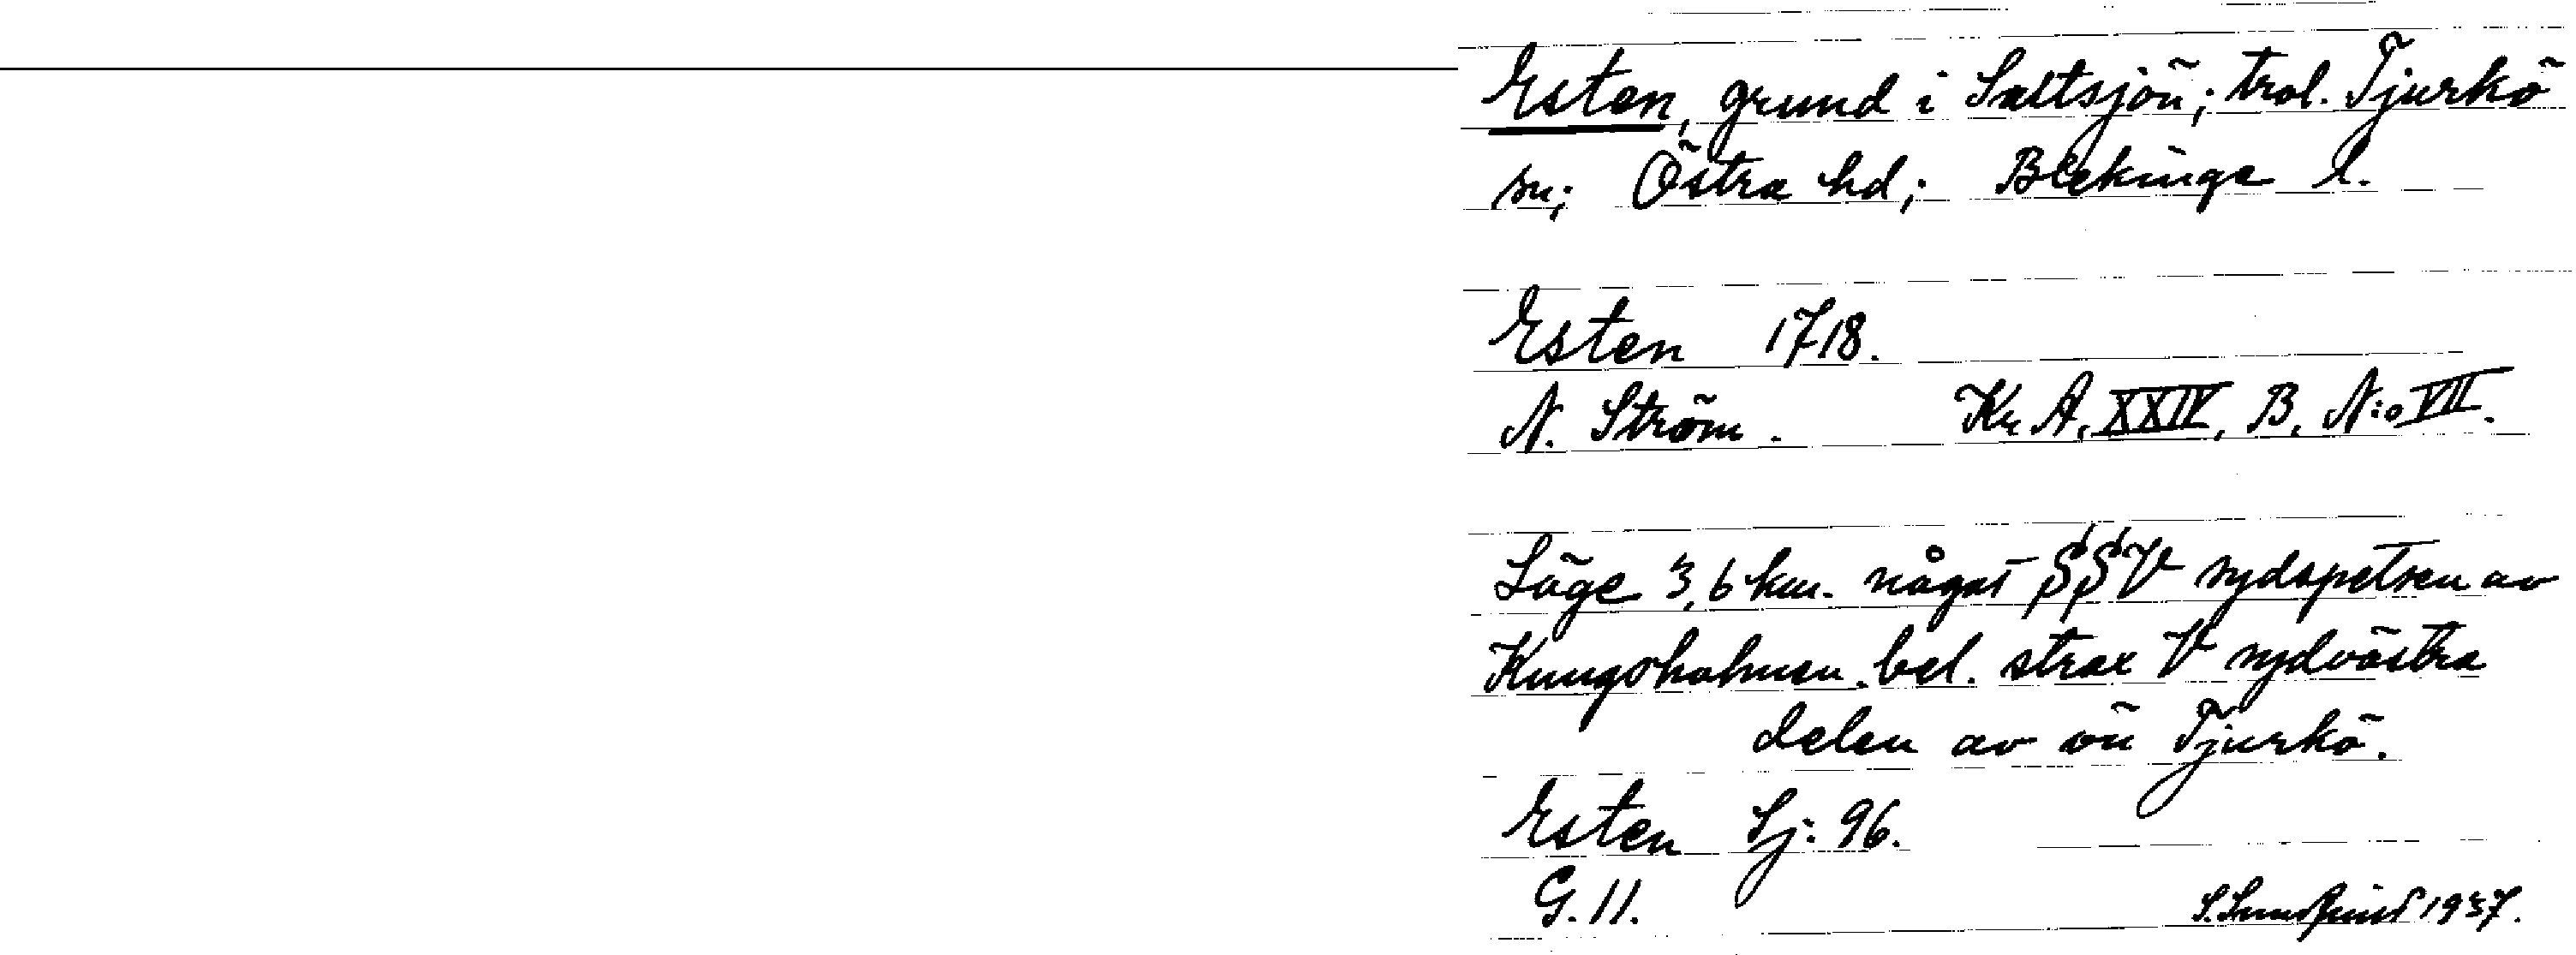 Esten, grund i Saltsjön; trol. Tjurkö
sn; Östra hd; Blekinge l.
Esten 1718.
N. Ström. Kr. A, XXIV, B, N:o VII.
Läge 3,6 km. något SSV sydspetsen av
Kungsholmen. bel. strax V sydvästra
delen av ön Tjurkö.
Esten Sj: 96.
G. 11. 1937.